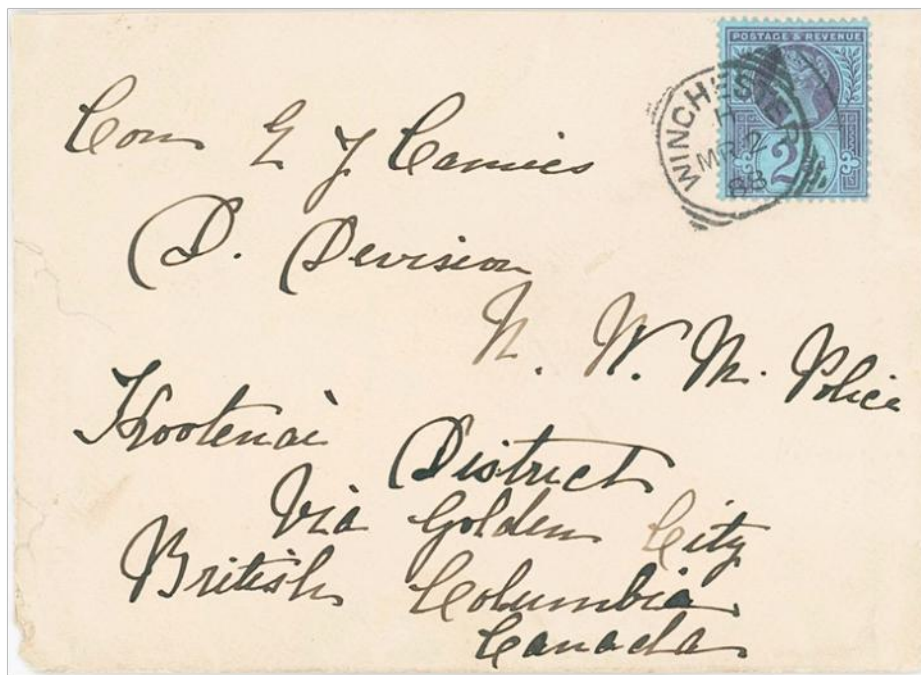 POSTAGE & REVENUE
WINCHESTER
H
MR 2
88
2
Con E J Camies
D. Devision
N. W. M. Police
Kootenai
District
Via Golden City
British Columbia
Canada